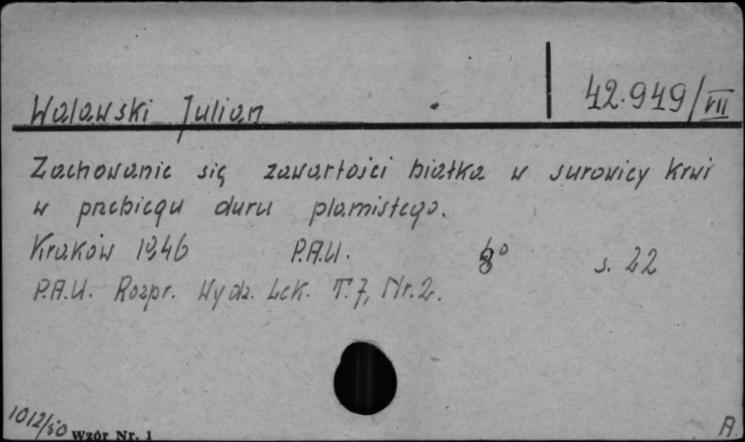 42.949/VII
Walawski Julian
Zachowanie się zawartości białka w surowicy krwi
w przebiegu duru plamistego.
Kraków 1946 P.A.U. 8° s. 22
P.A.U. Rozpr. Wydz. Lek. T. 7, Nr. 2.
1012/50 Wzór Nr. 1 A